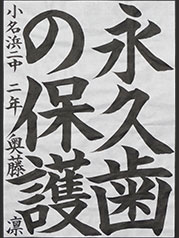 永久歯
の保護
小名浜二中 二年 奥藤 凛